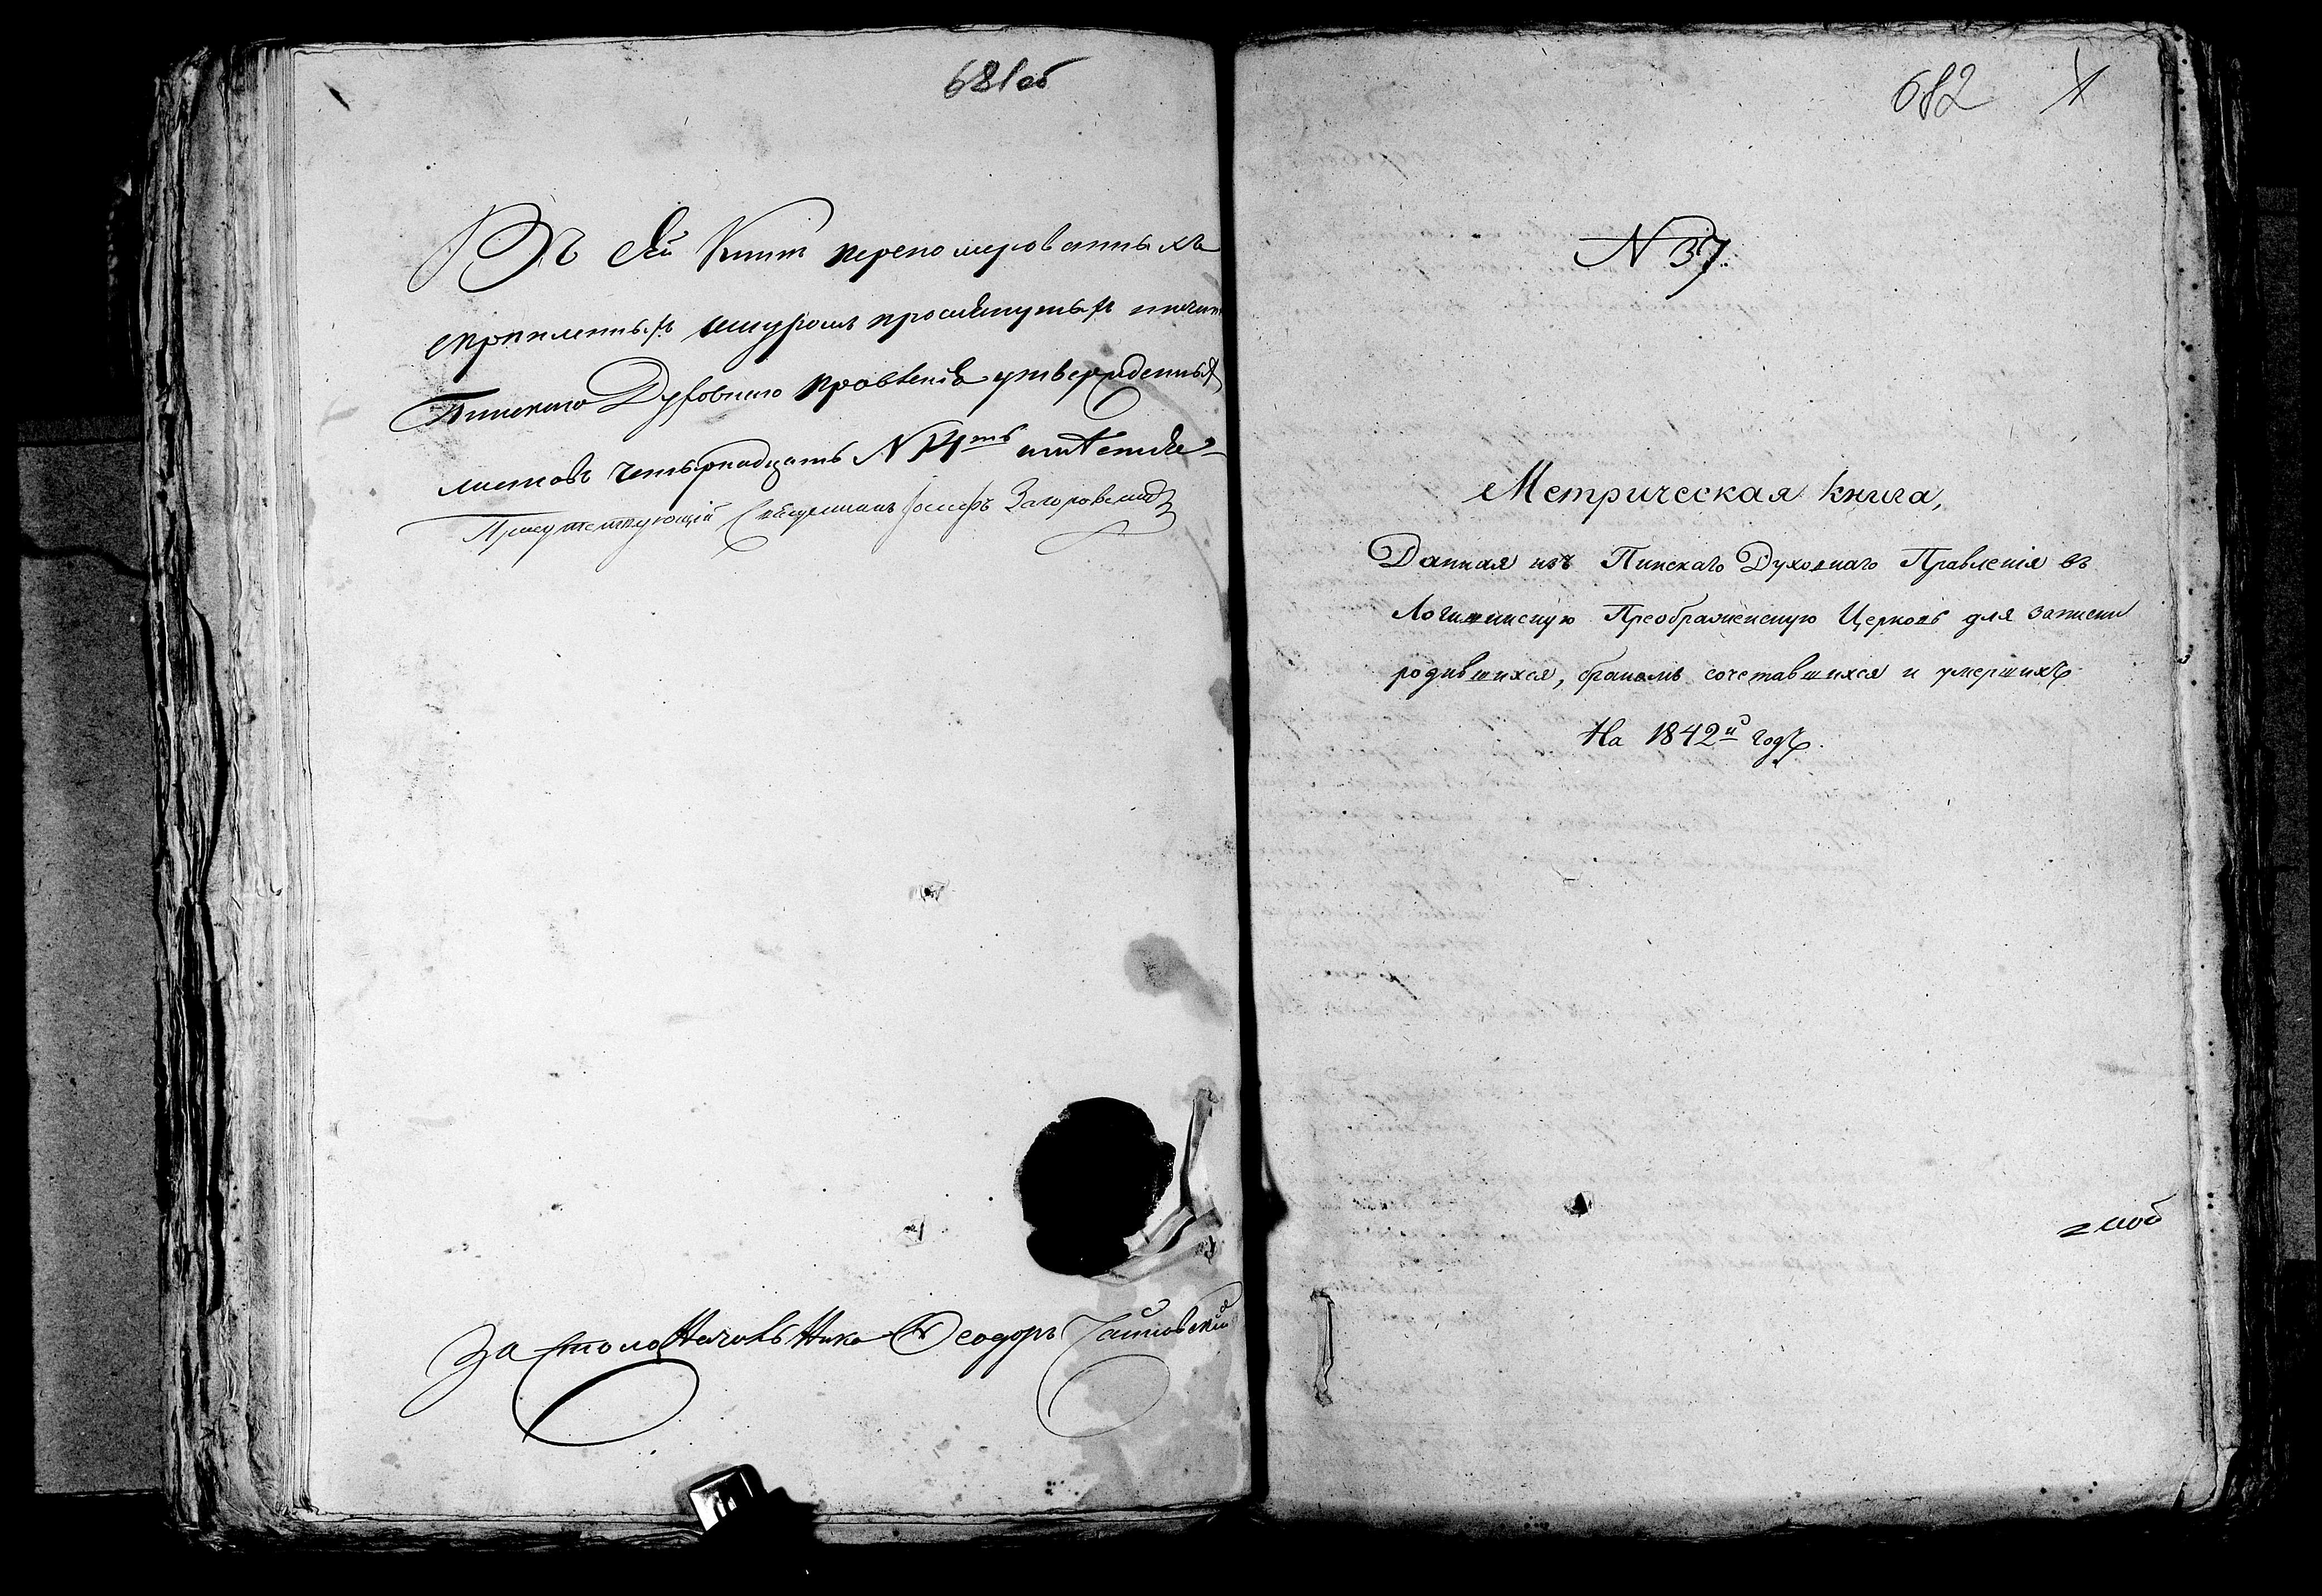 681об
Въ сей Книгѣ перенумерованныхъ
скрепленныхъ шнуромъ просѣянутыхъ
Пинскаго Духовнаго Правленія утвержденныхъ
листовъ четырнадцать N 14ть
Присутствующій Священникъ Іосифъ Загоровскій
За Столоначальника Ѳеодоръ
682
N 37
Метрическая книга,
Данная изъ Пинскаго Духовнаго Правленія въ
Логишинскую Преображенскую Церковь для записки
родившихся, бракомъ сочетавшихся и умершихъ
На 1842й годъ.